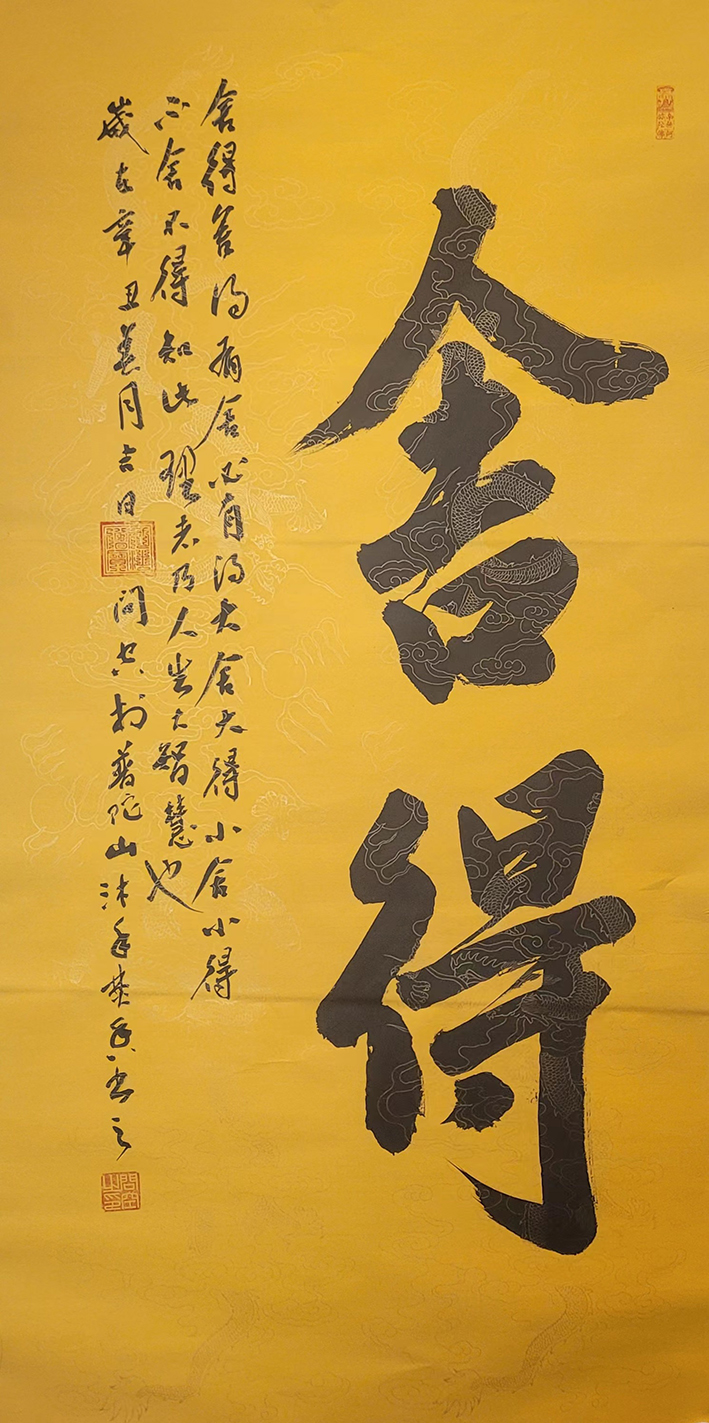 舍得
舍得舍得有舍必有得大舍大得小舍小得
不舍不得知此理者乃人生大智慧也
歲在辛丑月吉日
問空於普陀山沐手焚香書之
問空之印